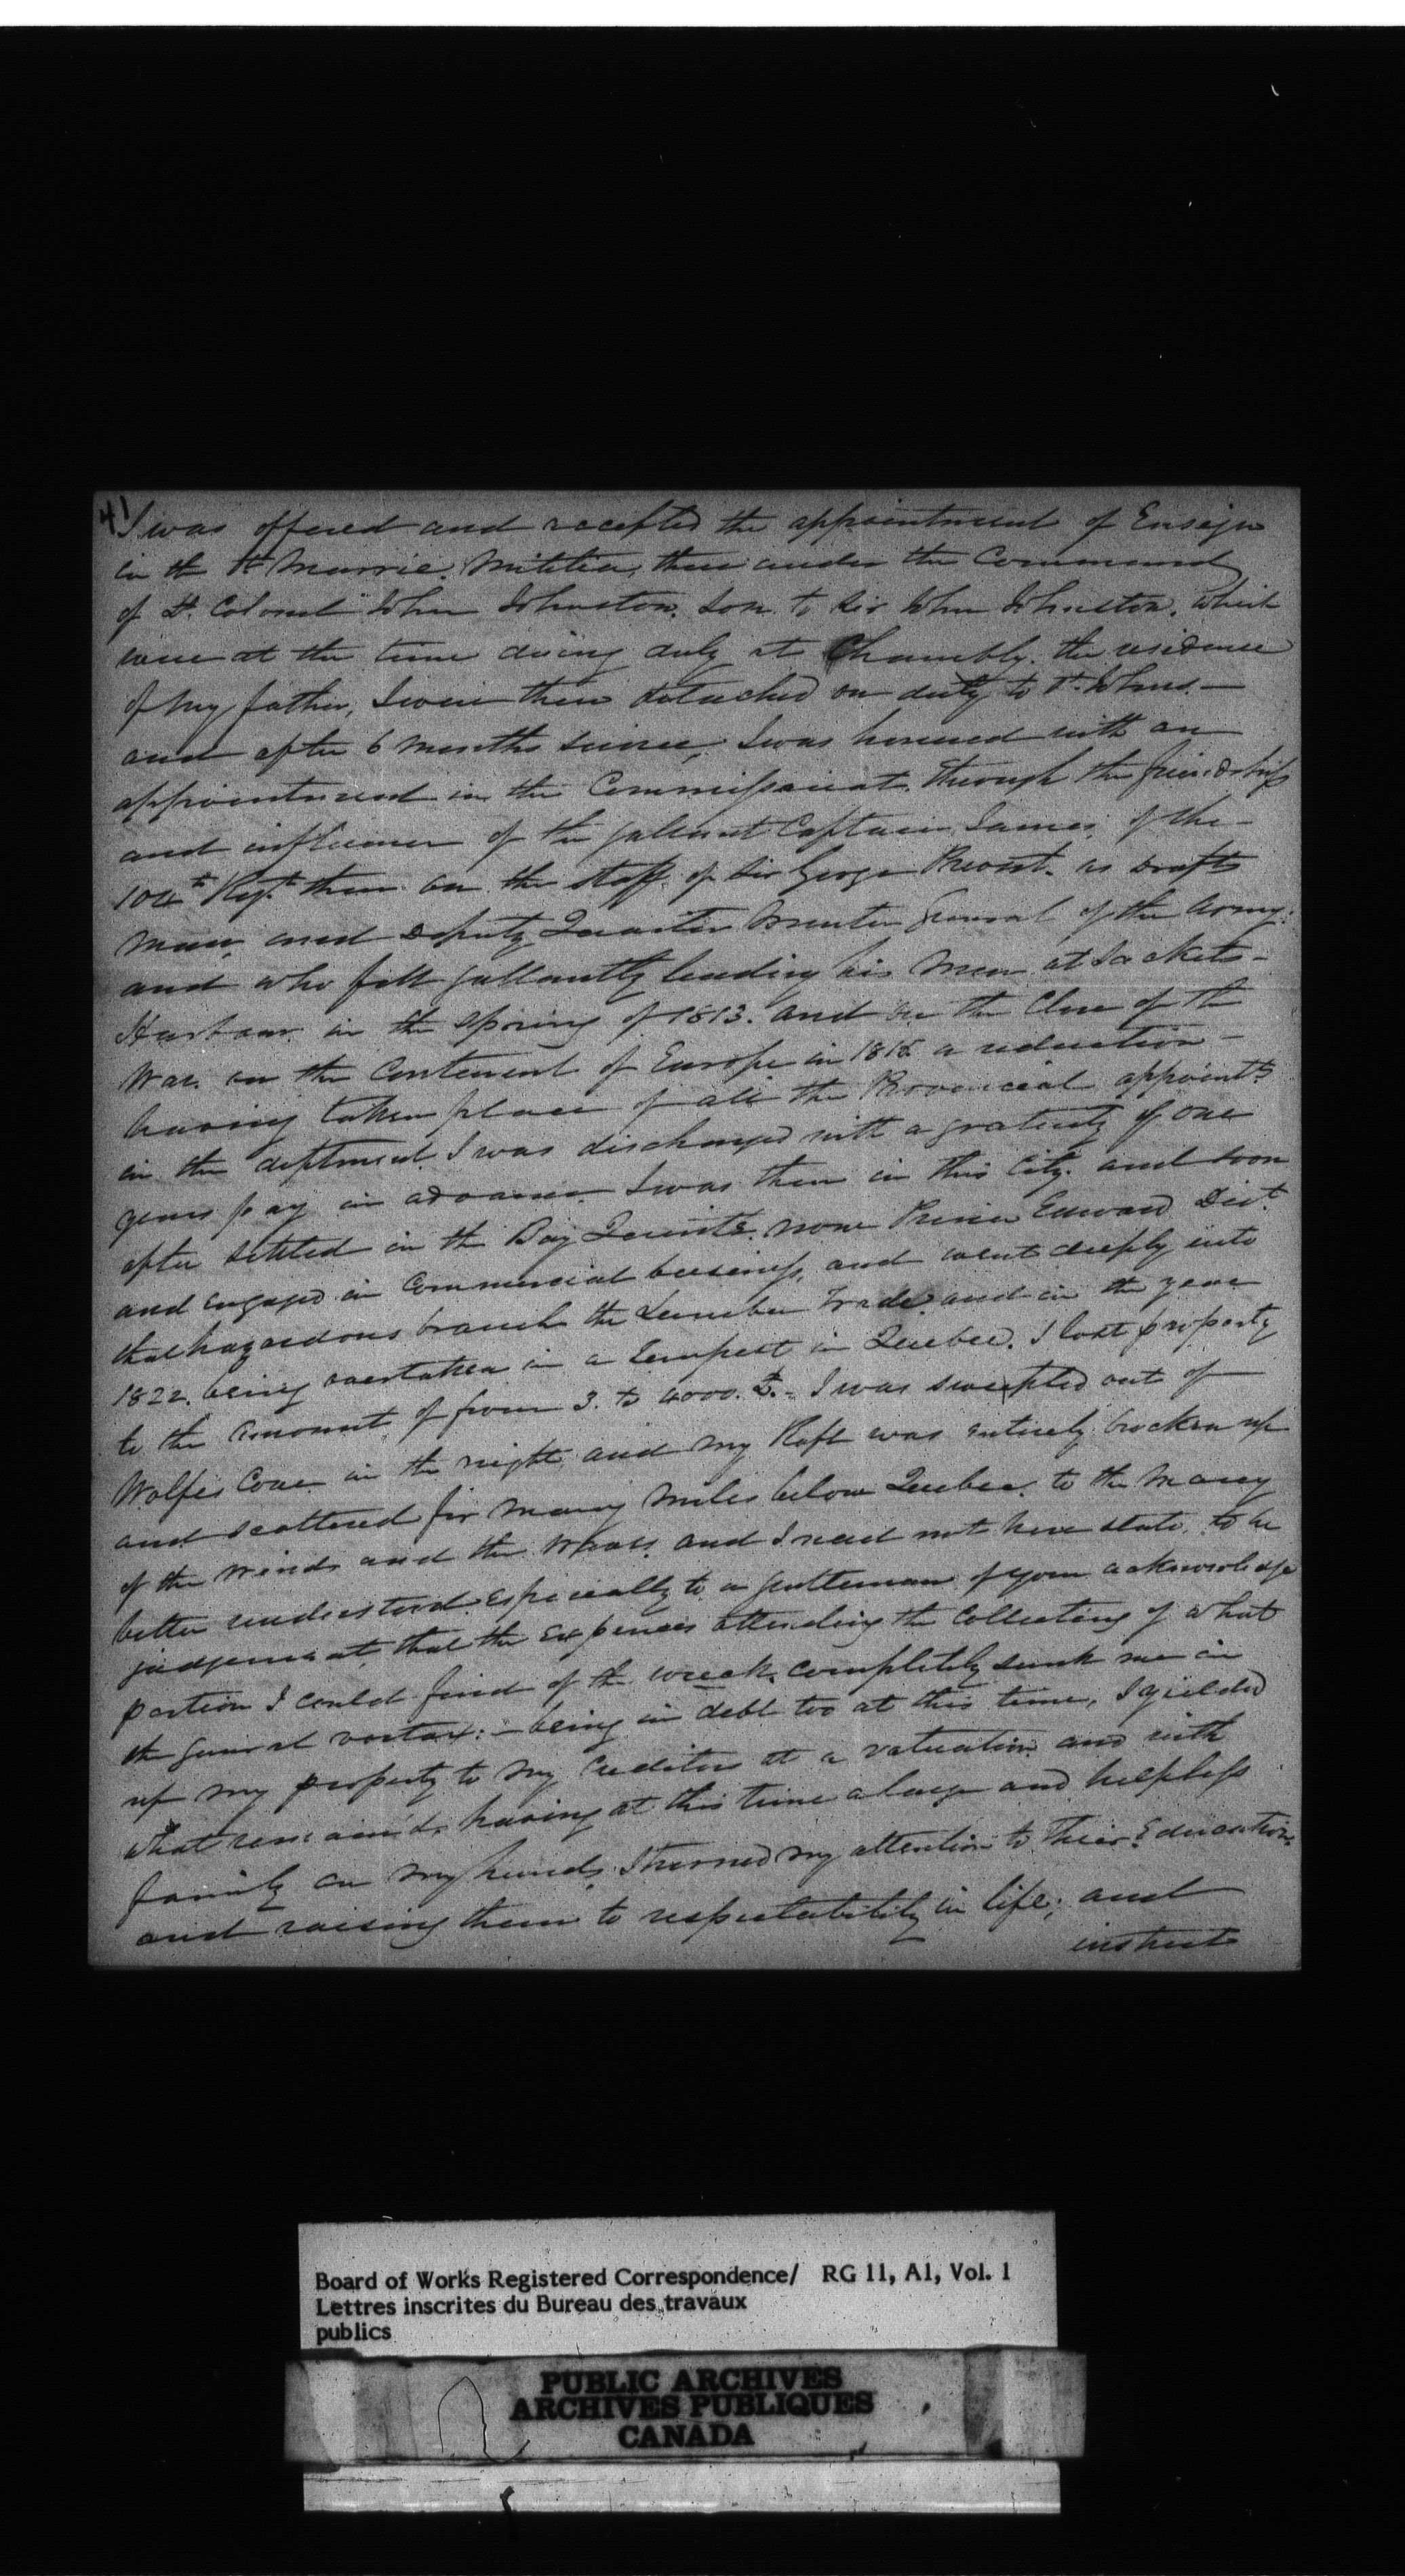 41
I was offered and accepted the appointment of Ensign
in the St Marrie. Militia, then under the Command
of Lt. Colonel John Johnston. Son to Sir John Johnston. which
were at the time doing duty at Chambly. the residence
of my father, I were then detached on duty to St. Johns.—
and after 6 months service, I was honored with an
appointment in the Commissariat. through the friendship
and influence of the gallant Captain of the—
104th Regt. then on the staff of Sir George Prevost. as Drafts
man, and Deputy Quarter Master General of the Army:
and who fell gallantly leading his Men at Sackets-
Harbour in the Spring of 1813. and on the Close of the
War. on the Contenent of Europe in 1815 a reduction—
having taken place of all the Provincial appointts
in the deptment I was discharged with a gratuity of one
years pay in advance. I was then in this City. and soon
after settled in the Bay Quinte. now Prince Edward Dist.
and engaged in Commercial business, and went deeply into
that hazardous branch the Lumber Trade. and in the year
1822. being overtaken in a Tempest in Quebec. I lost property
to the amount of from 3. to 4000. £.- I was swepted out of
Wolfes Cove in the night and my Raft was entirely brocken up
and scattered for many miles below Quebec. to the Marcy
of the Winds and the Waves. and I need not here state, to be
better understood especially to a gentleman of your acknowledge
judgement, that the expences attending the Collecting of what
portion I could find of the wreck, completely sunk me in
the general vortax:- being in debt too at this time, I yielded
up my property to my Creditors at a valuation and with
what remained, having at this time a large and helpless
family on my hands, I turned my attention to Their Education.
and raising them to respectability in life; and
instruct
Board of Works Registered Correspondence/ RG 11, A1, Vol. 1
Lettres inscrites du Bureau des travaux
publics
PUBLIC ARCHIVES
ARCHIVES PUBLIQUES
CANADA